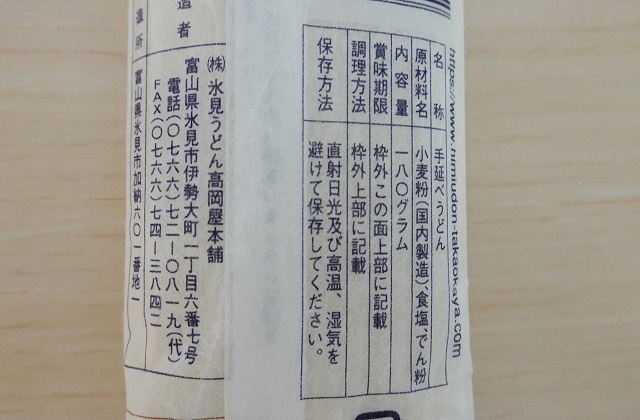 https://www.himiudon-takaokaya.com
名称 手延べうどん
原材料名 小麦粉(国内製造)、食塩、でん粉
内容量 一八〇グラム
賞味期限 枠外この面上部に記載
調理方法 枠外上部に記載
保存方法 直射日光及び高温、湿気を
避けて保存してください。
造者
㈱氷見うどん高岡屋本舗
富山県氷見市伊勢大町一丁目六番七号
電話(〇七六六)七二ー〇八一九(代)
FAX(〇七六六)七四ー三八四二
造所 富山県氷見市加納六〇一番地一